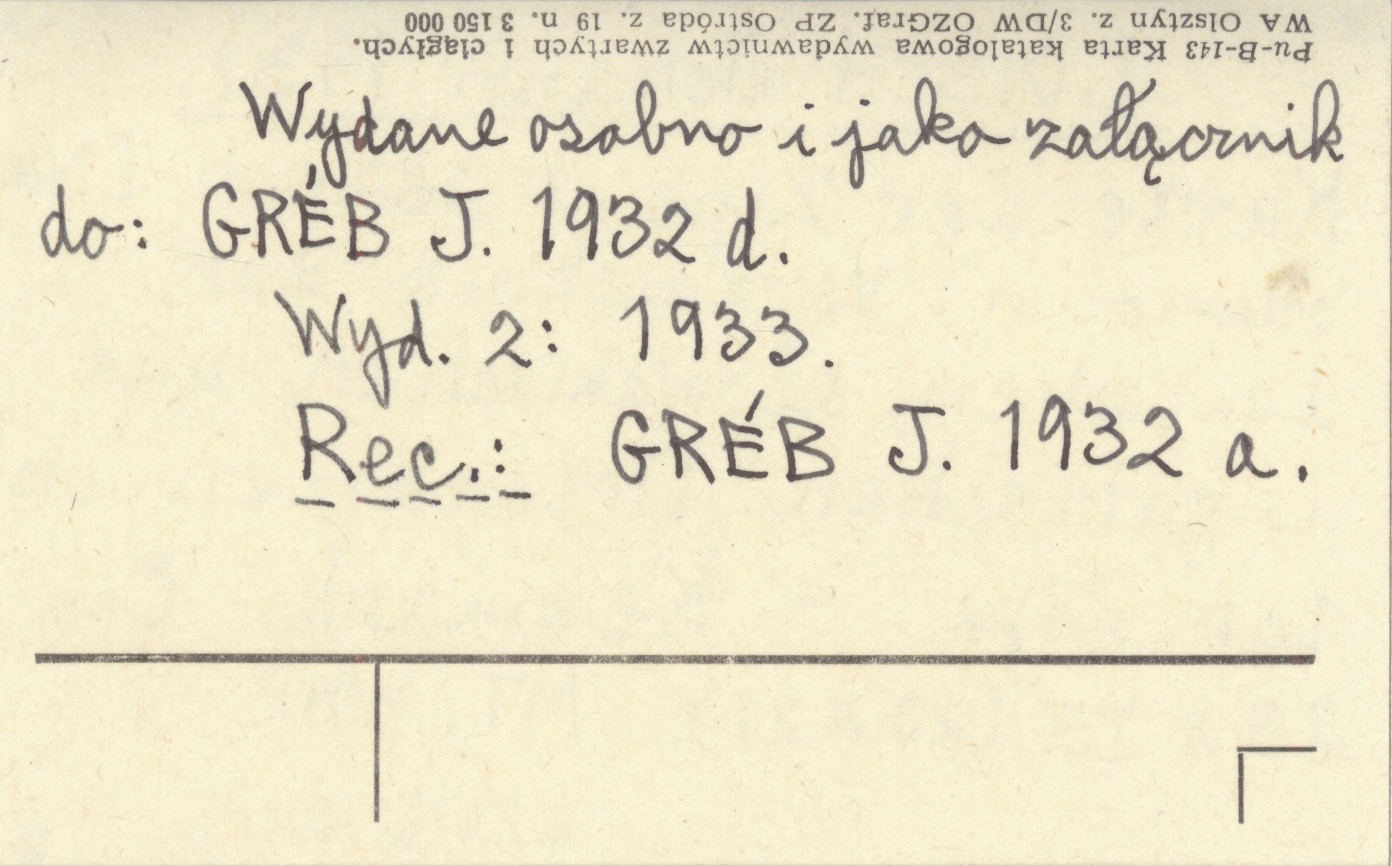 Pu-B-143 Karta katalogowa wydawnictw zwartych i ciągłych.
WA Olsztyn z. 3/DW OZGraf. ZP Ostróda z. 19 n. 3 150 000
Wydane osobno i jako załącznik
do: GRÉB J. 1932 d.
Wyd. 2: 1933.
Rec.: GRÉB J. 1932 a.